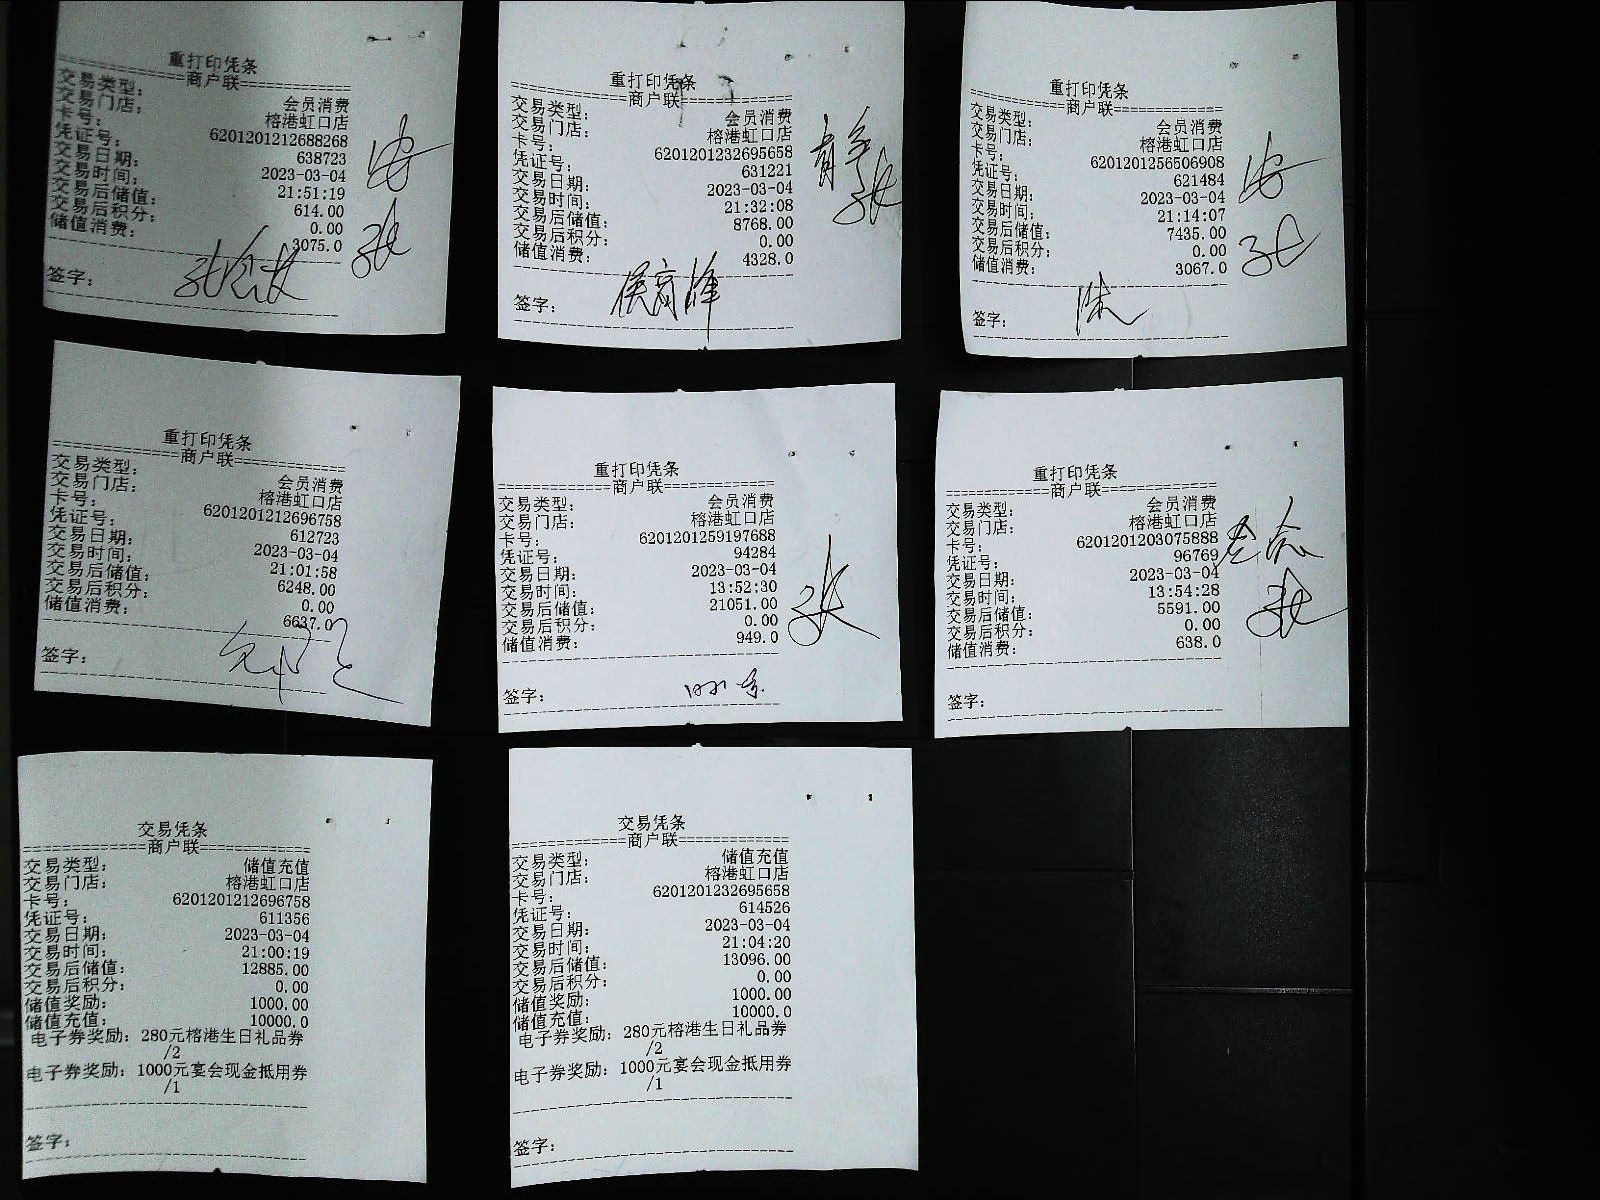 重打印凭条
============商户联============
交易类型: 会员消费
交易门店: 榕港虹口店
卡号: 6201201212688268
凭证号: 638723
交易日期: 2023-03-04
交易时间: 21:51:19
交易后储值: 614.00
交易后积分: 0.00
储值消费: 3075.0
签字:
重打印凭条
============商户联============
交易类型: 会员消费
交易门店: 榕港虹口店
卡号: 6201201232695658
凭证号: 631221
交易日期: 2023-03-04
交易时间: 21:32:08
交易后储值: 8768.00
交易后积分: 0.00
储值消费: 4328.0
签字:
重打印凭条
============商户联============
交易类型: 会员消费
交易门店: 榕港虹口店
卡号: 6201201256506908
凭证号: 621484
交易日期: 2023-03-04
交易时间: 21:14:07
交易后储值: 7435.00
交易后积分: 0.00
储值消费: 3067.0
签字:
重打印凭条
============商户联============
交易类型: 会员消费
交易门店: 榕港虹口店
卡号: 6201201212696758
凭证号: 612723
交易日期: 2023-03-04
交易时间: 21:01:58
交易后储值: 6248.00
交易后积分: 0.00
储值消费: 6637.0
签字:
重打印凭条
============商户联============
交易类型: 会员消费
交易门店: 榕港虹口店
卡号: 6201201259197688
凭证号: 94284
交易日期: 2023-03-04
交易时间: 13:52:30
交易后储值: 21051.00
交易后积分: 0.00
储值消费: 949.0
签字:
重打印凭条
============商户联============
交易类型: 会员消费
交易门店: 榕港虹口店
卡号: 6201201203075888
凭证号: 96769
交易日期: 2023-03-04
交易时间: 13:54:28
交易后储值: 5591.00
交易后积分: 0.00
储值消费: 638.0
签字:
交易凭条
============商户联============
交易类型: 储值充值
交易门店: 榕港虹口店
卡号: 6201201212696758
凭证号: 611356
交易日期: 2023-03-04
交易时间: 21:00:19
交易后储值: 12885.00
交易后积分: 0.00
储值奖励: 1000.00
储值充值: 10000.0
电子券奖励: 280元榕港生日礼品券
/2
电子券奖励: 1000元宴会现金抵用券
/1
签字:
交易凭条
============商户联============
交易类型: 储值充值
交易门店: 榕港虹口店
卡号: 6201201232695658
凭证号: 614526
交易日期: 2023-03-04
交易时间: 21:04:20
交易后储值: 13096.00
交易后积分: 0.00
储值奖励: 1000.00
储值充值: 10000.0
电子券奖励: 280元榕港生日礼品券
/2
电子券奖励: 1000元宴会现金抵用券
/1
签字: